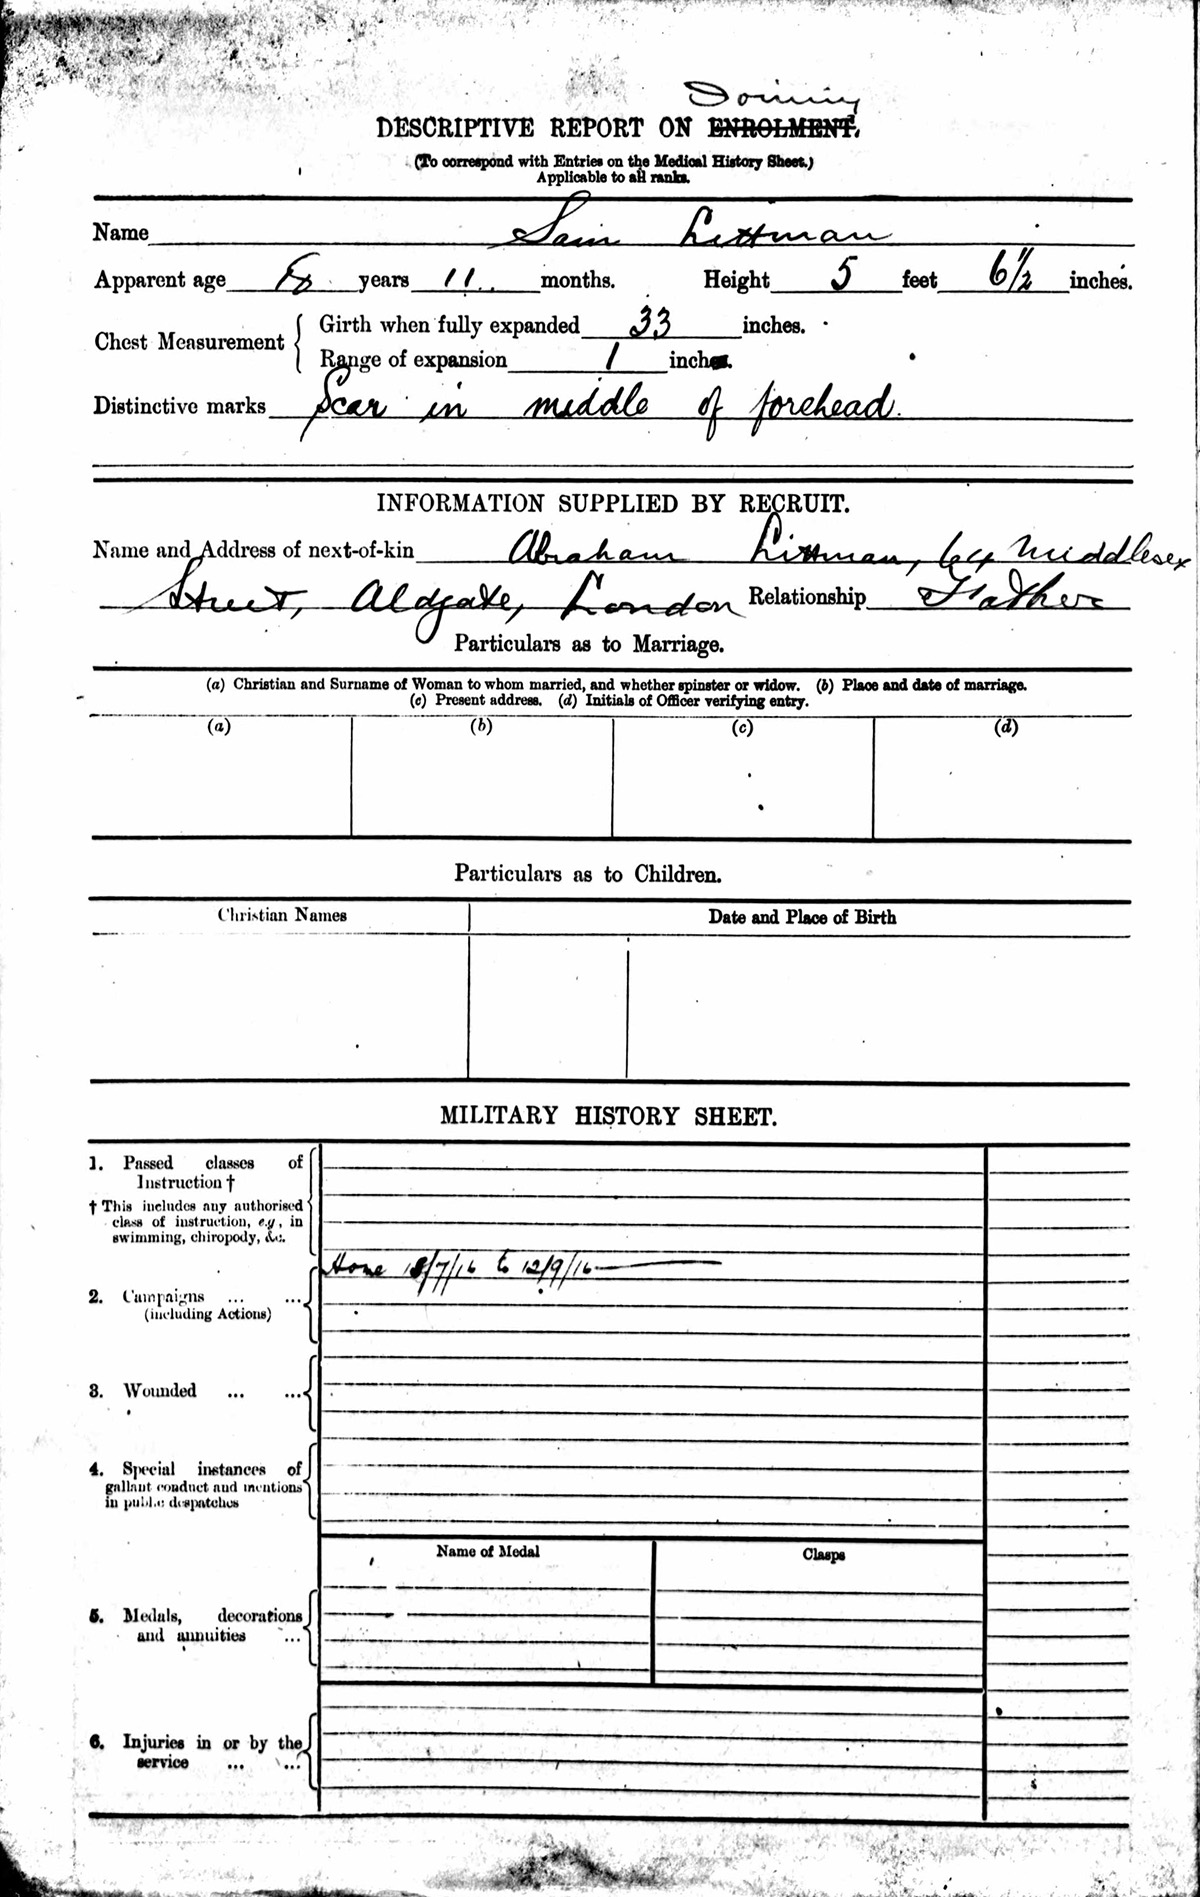 Joining
DESCRIPTIVE REPORT ON ENROLMENT.
(To correspond with Entries on the Medical History Sheet.)
Applicable to all ranks.
Name Sam Littman
Apparent age 18 years 11 months. Height 5 feet 6 1/2 inches.
Chest Measurement { Girth when fully expanded 33 inches.
Range of expansion 1 inches.
Distinctive marks Scar in middle of forehead.
INFORMATION SUPPLIED BY RECRUIT.
Name and Address of next-of-kin Abraham Littman, 64 Middlesex
Street, Aldgate, London Relationship Father
Particulars as to Marriage.
(a) Christian and Surname of Woman to whom married, and whether spinster or widow. (b) Place and date of marriage.
(c) Present address. (d) Initials of Officer verifying entry.
(a) (b) (c) (d)
Particulars as to Children.
Christian Names Date and Place of Birth
MILITARY HISTORY SHEET.
1. Passed classes of
Instruction †
† This includes any authorised
class of instruction, e.g., in
swimming, chiropody, &c.
Home 18/7/16 to 12/9/16
2. Campaigns ... ...
(including Actions)
3. Wounded ... ...
4. Special instances of
gallant conduct and mentions
in public despatches
Name of Medal Clasps
5. Medals, decorations
and annuities ...
6. Injuries in or by the
service ... ...